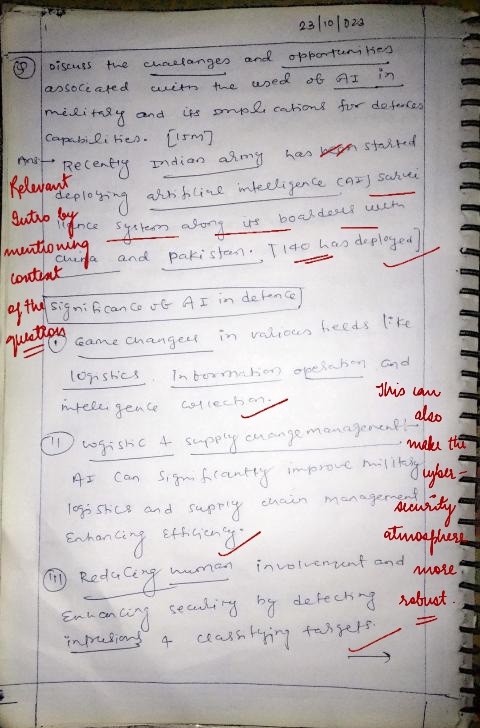 23/10/023
Q discuss the challanges and opportunities
associated with the used of AI in
military and its implications for defence
capabilities. [15M]
Ans → Recently Indian army has started
deploying artificial intelligence (AI) survei
llance system along its boarders with
china and pakistan. [140 has deployed]
Relevant
Intro by
mentioning
context
of the
question
Significance of AI in defence
Game changers in various feeds like
logistics. Information operation and
intelligence collection.
II logistic & supply change management:-
AI can significantly improve military
logistics and supply chain management
Enhancing Efficiency.
This can
also
make the
cyber-
security
atmosphere
more
robust.
III Reducing human involvement and
Enhancing security by detecting
intrusions & classifying targets.